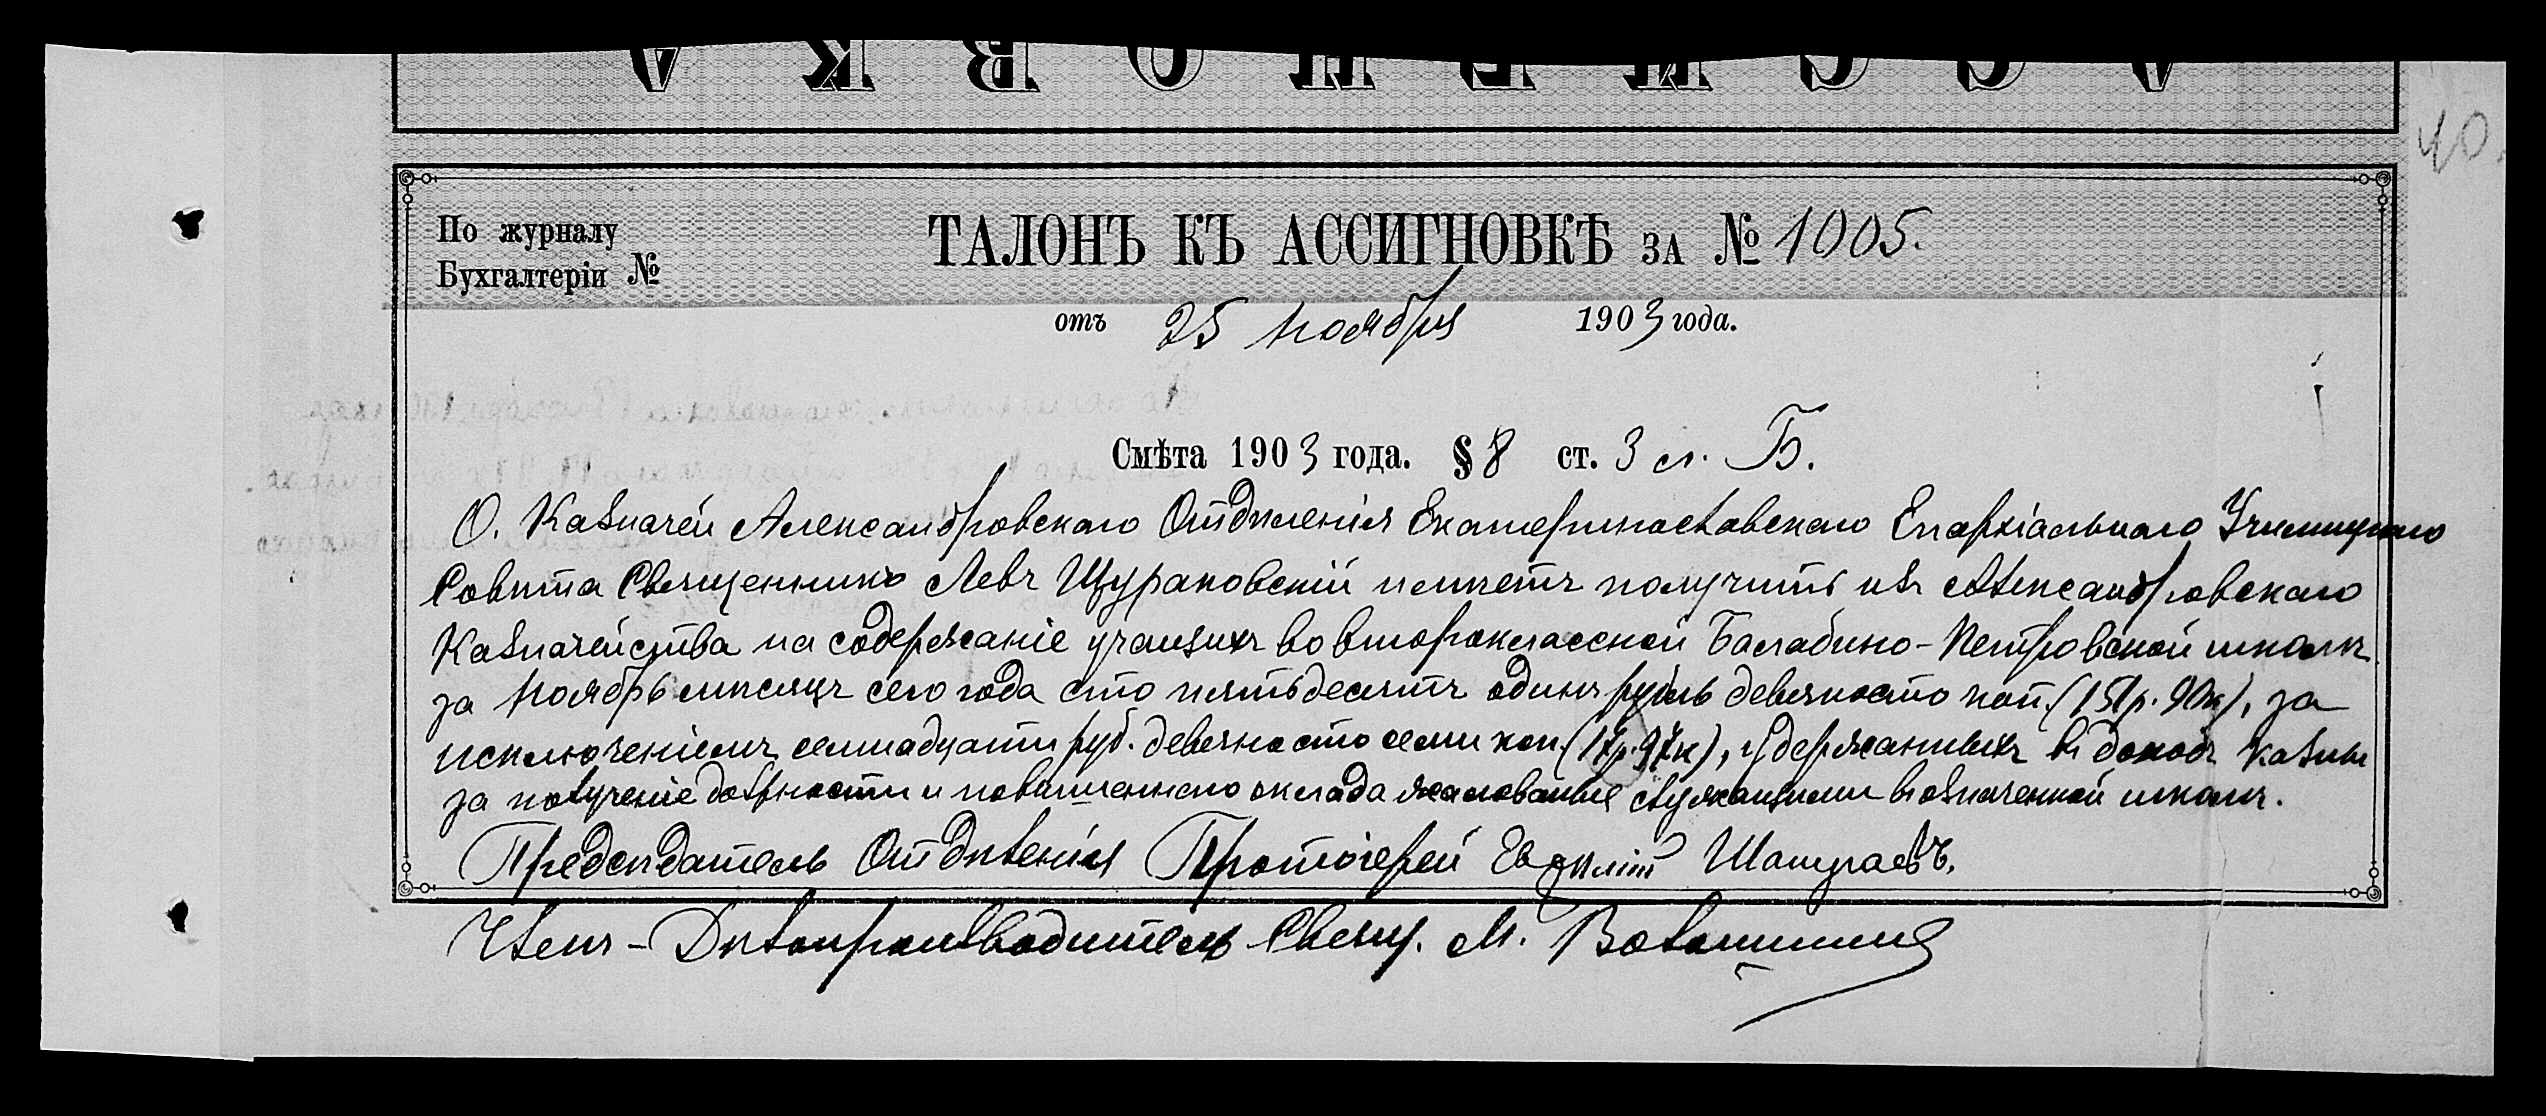 АССИГНОВКА
40.
По журналу
Бухгалтеріи №
ТАЛОНЪ КЪ АССИГНОВКѢ ЗА № 1005.
отъ 25 Ноября 1903 года.
Смѣта 1903 года. § 8 ст. 3 л. Б.
О. Казначей Александровскаго Отдѣленія Екатеринославскаго Епархіальнаго Училищнаго
Совѣта Священникъ Левъ Щураковскій имѣетъ получить изъ Александровскаго
Казначейства на содержаніе учащихъ во второклассной Балабино-Петровской школѣ
за Ноябрь мѣсяцъ сего года сто пятьдесятъ одинъ рубль девяносто коп. (151р. 90к), за
исключеніемъ семнадцати руб. девяносто семи коп. (17р. 97к), удержанныхъ въ доходъ казны
за полученіе должности и повышеннаго оклада жалованья служащими въ означенной школѣ.
Предсѣдатель Отдѣленія Протоіерей
Членъ-Дѣлопроизводитель Свящ. М.